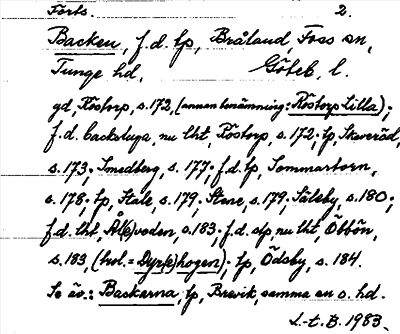 Forts. 2.
Backen, f.d. lp, Bråland, Foss sn,
Tunge hd, Göteb. l.
gd, Röstorp, s. 172, (annan benämning: Röstorp Lilla);
f.d. backstuga, nu lht, Röstorp, s. 172; lp, Skeveröd,
s. 173; Smedberg, s. 177; f.d. lp, Sommartorn,
s. 178; lp, Stale, s. 179, Stene, s. 179; Säleby, s. 180;
f.d. lht, Ål(e)voden, s. 183; f.d. slp, nu lht, Öbbön,
s. 183, (trol. = Dyr(e)hogen); lp, Ödsby, s. 184.
Se äv.: Backarna, lp, Brevik, samma sn o. hd.
L-t. B. 1983.